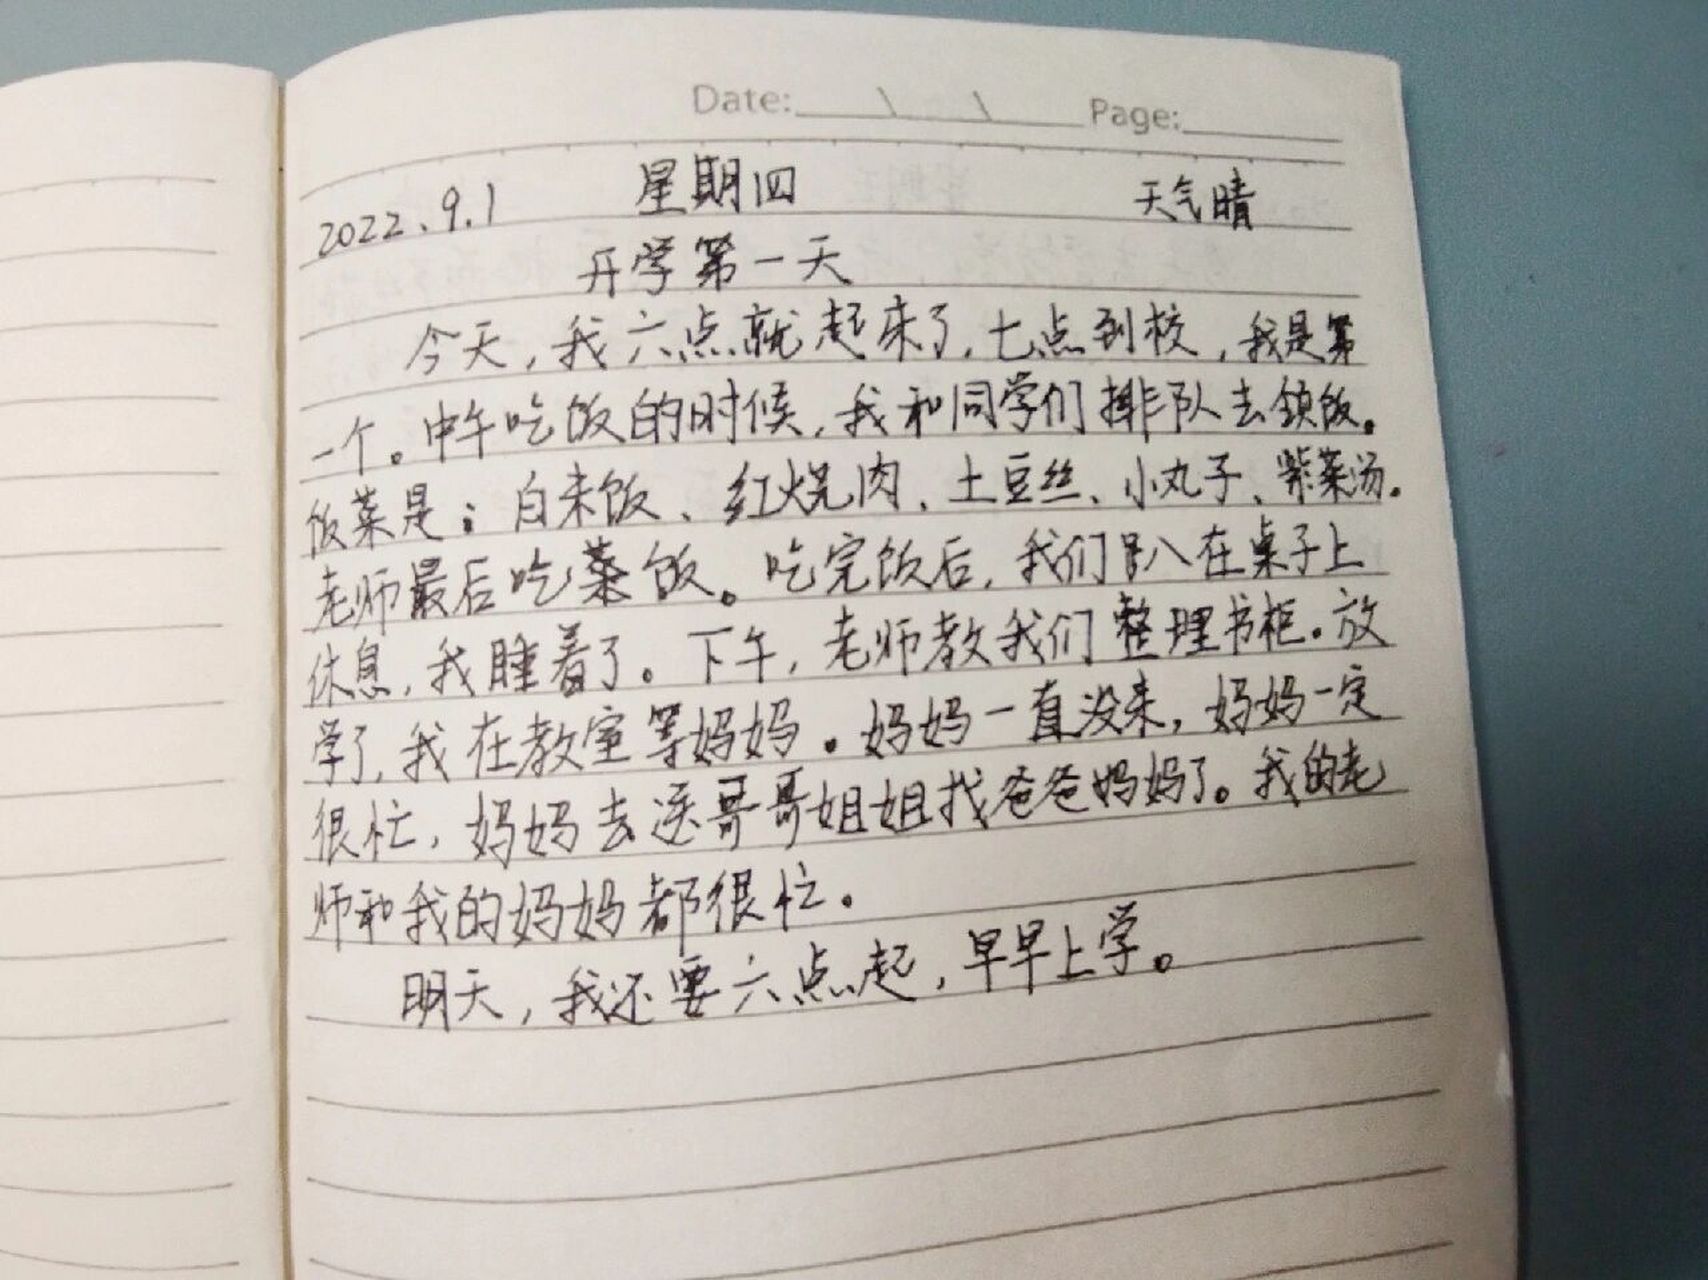 Date: \ \ Page:
2022.9.1 星期四 天气晴
开学第一天
今天，我六点就起来了，七点到校，我是第
一个。中午吃饭的时候，我和同学们排队去领饭。
饭菜是：白米饭、红烧肉、土豆丝、小丸子、紫菜汤。
老师最后吃菜饭。吃完饭后，我们趴在桌子上
休息，我睡着了。下午，老师教我们整理书柜。放
学了，我在教室等妈妈。妈妈一直没来，妈妈一定
很忙，妈妈去送哥哥姐姐找爸爸妈妈了。我的老
师和我的妈妈都很忙。
明天，我还要六点起，早早上学。